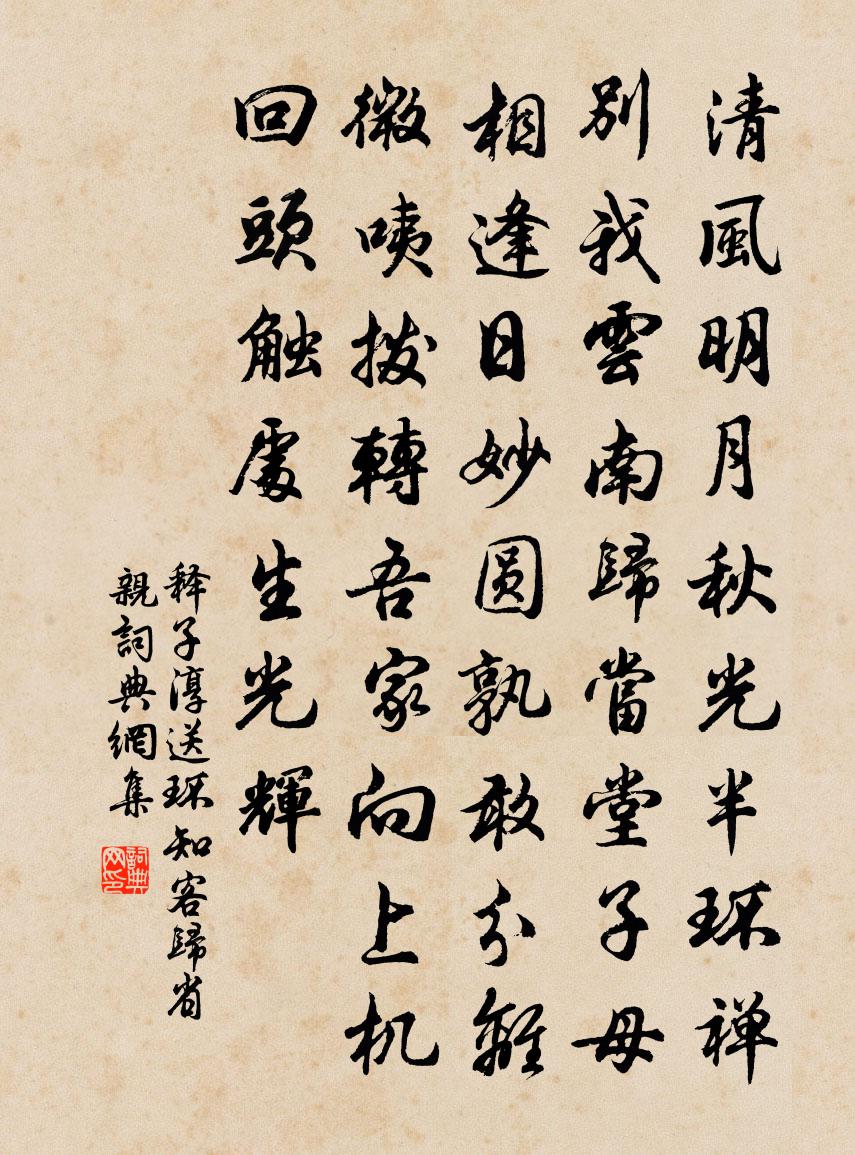 清風明月秋光半环禅
別我雲南歸當堂子母
相逢日妙圆孰敢分離
微咦拨轉吾家向上机
回頭触處生光輝
释子淳送环知客歸省
親詞典網集
詞典
网印